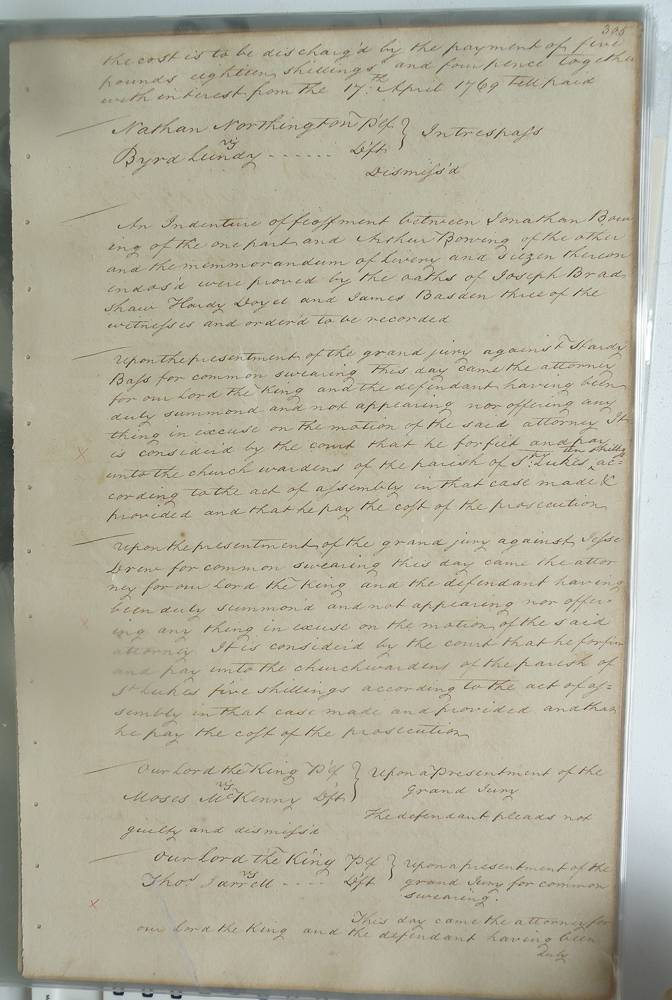 308
the cost is to be discharg'd by the payment of five
pounds eighteen shillings and four pence together
with interest from the 17th April 1769 till paid
Nathan Northington Plf } In trespass
vs
Byrd Lundy - - - - - - Dft
Dismiss'd
An Indenture of feoffment between Jonathan Bow
ing of the one part and Arthur Bowing of the other
and the memmorandum of Livery and Seizen thereon
endos'd were proved by the oaths of Joseph Brad
shaw Hardy Doyel and James Basden three of the
witnesses and order'd to be recorded
Upon the presentment of the grand jury against Hardy
Bass for common swearing this day came the attorney
for our Lord the King and the defendant having been
duly summond and not appearing nor offering any
thing in excuse on the motion of the said attorney It
is consider'd by the court that he forfiet and pay
ten shillings
unto the church wardens of the parish of St Lukes, ac=
cording to the act of assembly in that case made &
provided and that he pay the cost of the prosecution
Upon the presentment of the grand jury against Jesse
Drew for common swearing this day came the attor
ney for our Lord the King and the defendant having
been duly summon'd and not appearing nor offer-
ing any thing in excuse on the motion of the said
attorney It is consider'd by the court that he forfiet
and pay unto the churchwardens of the parish of
St Lukes five shillings according to the act of as=
sembly in that case made and provided and that
he pay the cost of the prosecution
Our Lord the King Plf } Upon a Presentment of the
vs Grand Jury
Moses McKenny Dft
The defendant pleads not
guilty and dismiss'd
Our Lord the King Plf } Upon a presentment of the
vs
Thos Jarrell - - - - Dft grand Jury for common
swearing.
This day came the attorney for
our Lord the King and the defendant having been
duly